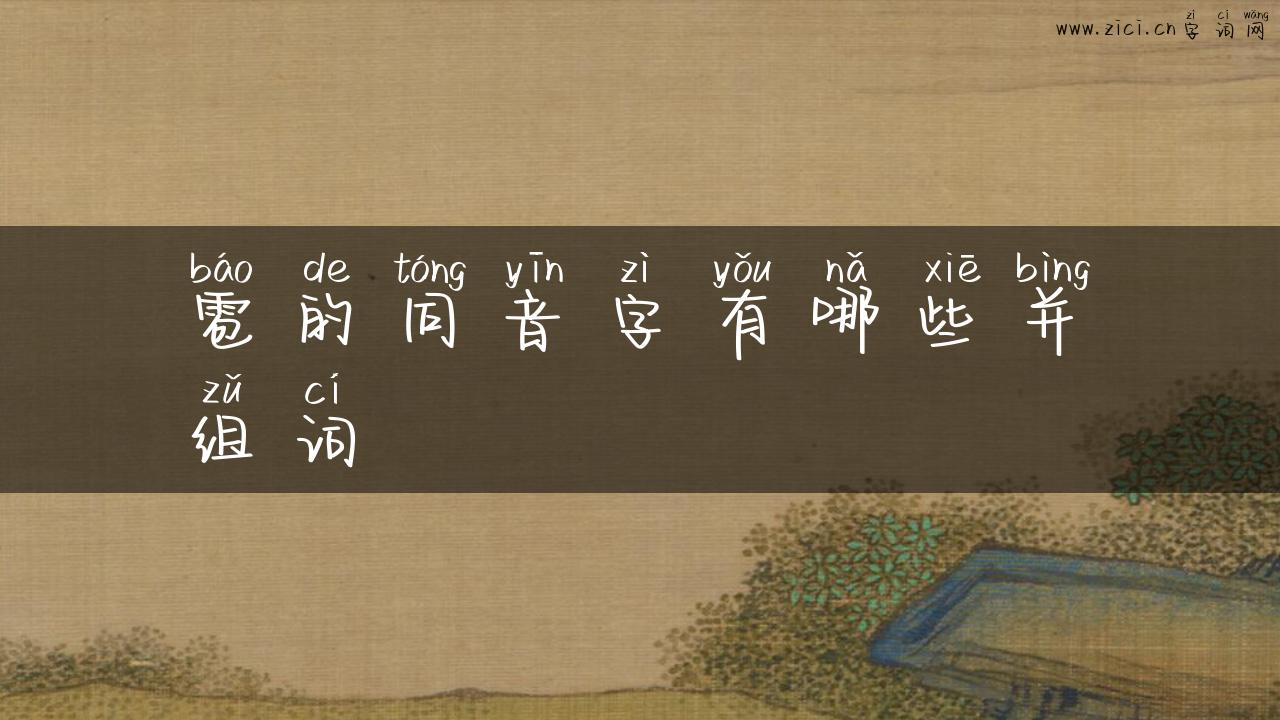 zì cí wǎng
www.zici.cn 字 词 网
báo de tóng yīn zì yǒu nǎ xiē bìng
雹 的 同 音 字 有 哪 些 并
zǔ cí
组 词